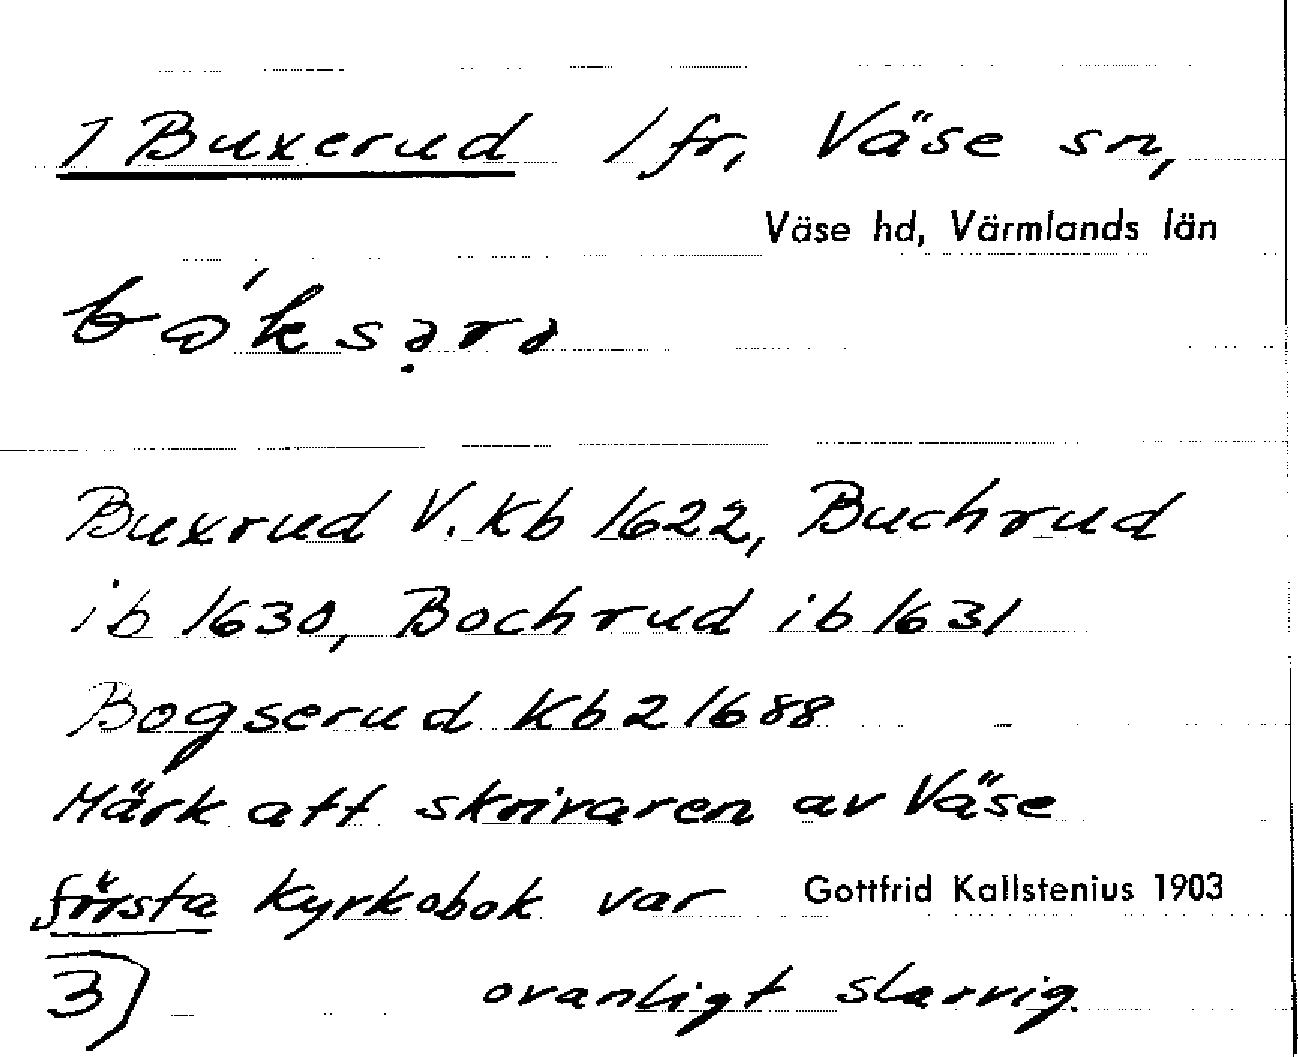 1 Buxerud 1 fr, Väse sn,
Väse hd, Värmlands län
Buxrud V. Kb 1622, Buchrud
ib 1630, Bochrud ib 1631
Bogserud Kb 2 1688
Märk att skrivaren av Väse
första kyrkobok var
Gottfrid Kallstenius 1903
3) ovanligt slarvig.